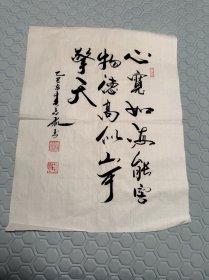 心宽如海能容
物德高似山可
擎天
乙巳年
书